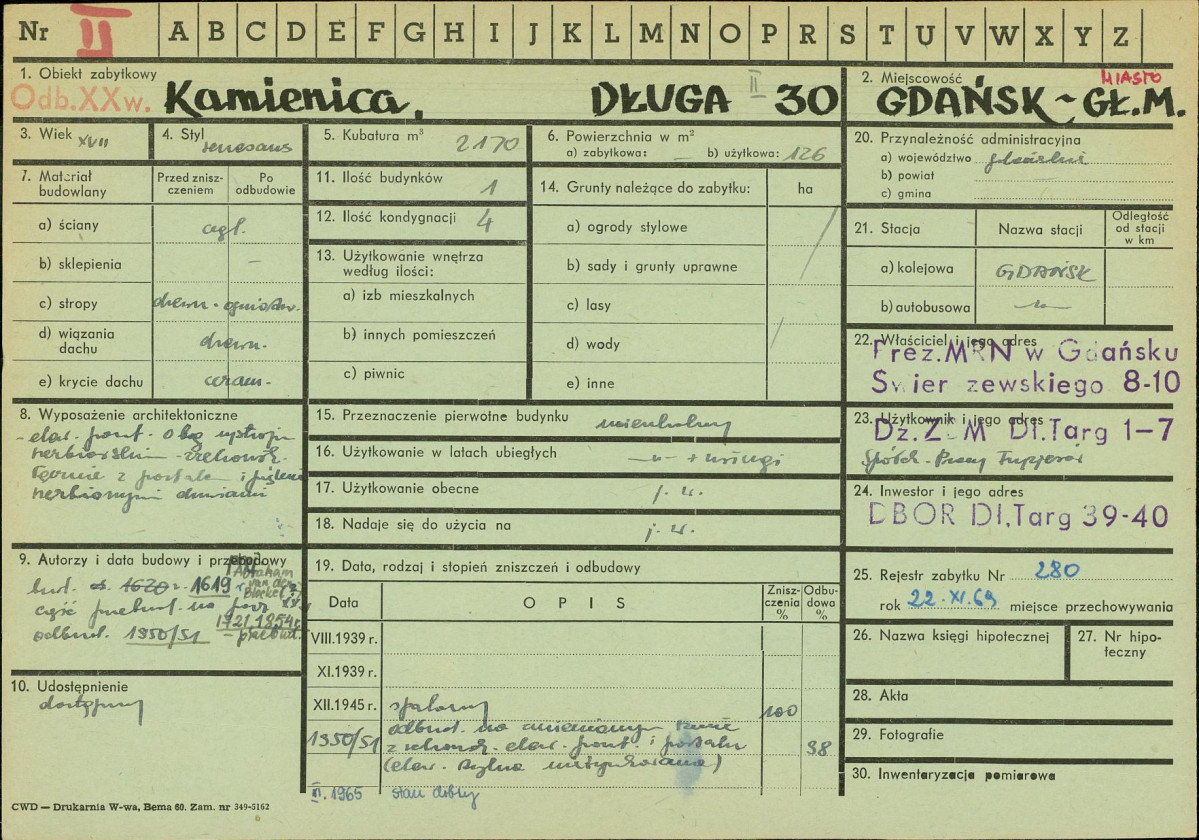 Nr II A B C D E F G H I J K L M N O P R S T U V W X Y Z
1. Obiekt zabytkowy
Odb. XX w. Kamienica, DŁUGA II 30
2. Miejscowość MIASTO
GDAŃSK-GŁ.M.
3. Wiek XVII
4. Styl renesans
5. Kubatura m³ 2170
6. Powierzchnia w m²
a) zabytkowa: — b) użytkowa: 126
7. Materiał budowlany
Przed zniszczeniem
Po odbudowie
a) ściany cegł.
b) sklepienia —
c) stropy drewn. - ogniotrw.
d) wiązania dachu drewn.
e) krycie dachu ceram.
8. Wyposażenie architektoniczne
- elew. front. o bog. wystroju
rzeźbiarskim - zrekonstr.
łącznie z portalem i pięknie
rzeźbionymi drzwiami
9. Autorzy i data budowy i przebudowy
bud. ok. 1620 r. 1619 r. Abraham van den Blocke (?)
część przebud. na pocz. XX w.
1721, 1854 r. - przebud.
odbud. 1950/51
10. Udostępnienie
dostępny
11. Ilość budynków 1
12. Ilość kondygnacji 4
13. Użytkowanie wnętrza
według ilości:
a) izb mieszkalnych
b) innych pomieszczeń
c) piwnic
14. Grunty należące do zabytku: ha
a) ogrody stylowe
b) sady i grunty uprawne
c) lasy
d) wody
e) inne
15. Przeznaczenie pierwotne budynku mieszkalny
16. Użytkowanie w latach ubiegłych —"— + usługi
17. Użytkowanie obecne j. w.
18. Nadaje się do użycia na j. w.
19. Data, rodzaj i stopień zniszczeń i odbudowy
Data
O P I S
Zniszczenia %
Odbudowa %
VIII.1939 r.
XI.1939 r.
XII.1945 r. spalony 100
1950/51 odbud. na zmienionym rzucie
z rekonstr. elew. front. i portalu 98
(elew. tylna nietynkowana)
II. 1965 stan dobry
20. Przynależność administracyjna
a) województwo gdańskie
b) powiat
c) gmina
21. Stacja
Nazwa stacji
Odległość od stacji w km
a) kolejowa GDAŃSK
b) autobusowa —"—
22. Właściciel i jego adres
Prez.MRN w Gdańsku
Swier zewskiego 8-10
23. Użytkownik i jego adres
Dz.ZBM Dł.Targ 1-7
Spółdz. Pracy Fryzjerów
24. Inwestor i jego adres
DBOR Dł.Targ 39-40
25. Rejestr zabytku Nr 280
rok 22.XI.69 miejsce przechowywania
26. Nazwa księgi hipotecznej
27. Nr hipoteczny
28. Akta
29. Fotografie
30. Inwentaryzacja pomiarowa
CWD — Drukarnia W-wa, Bema 60. Zam. nr 349-5162